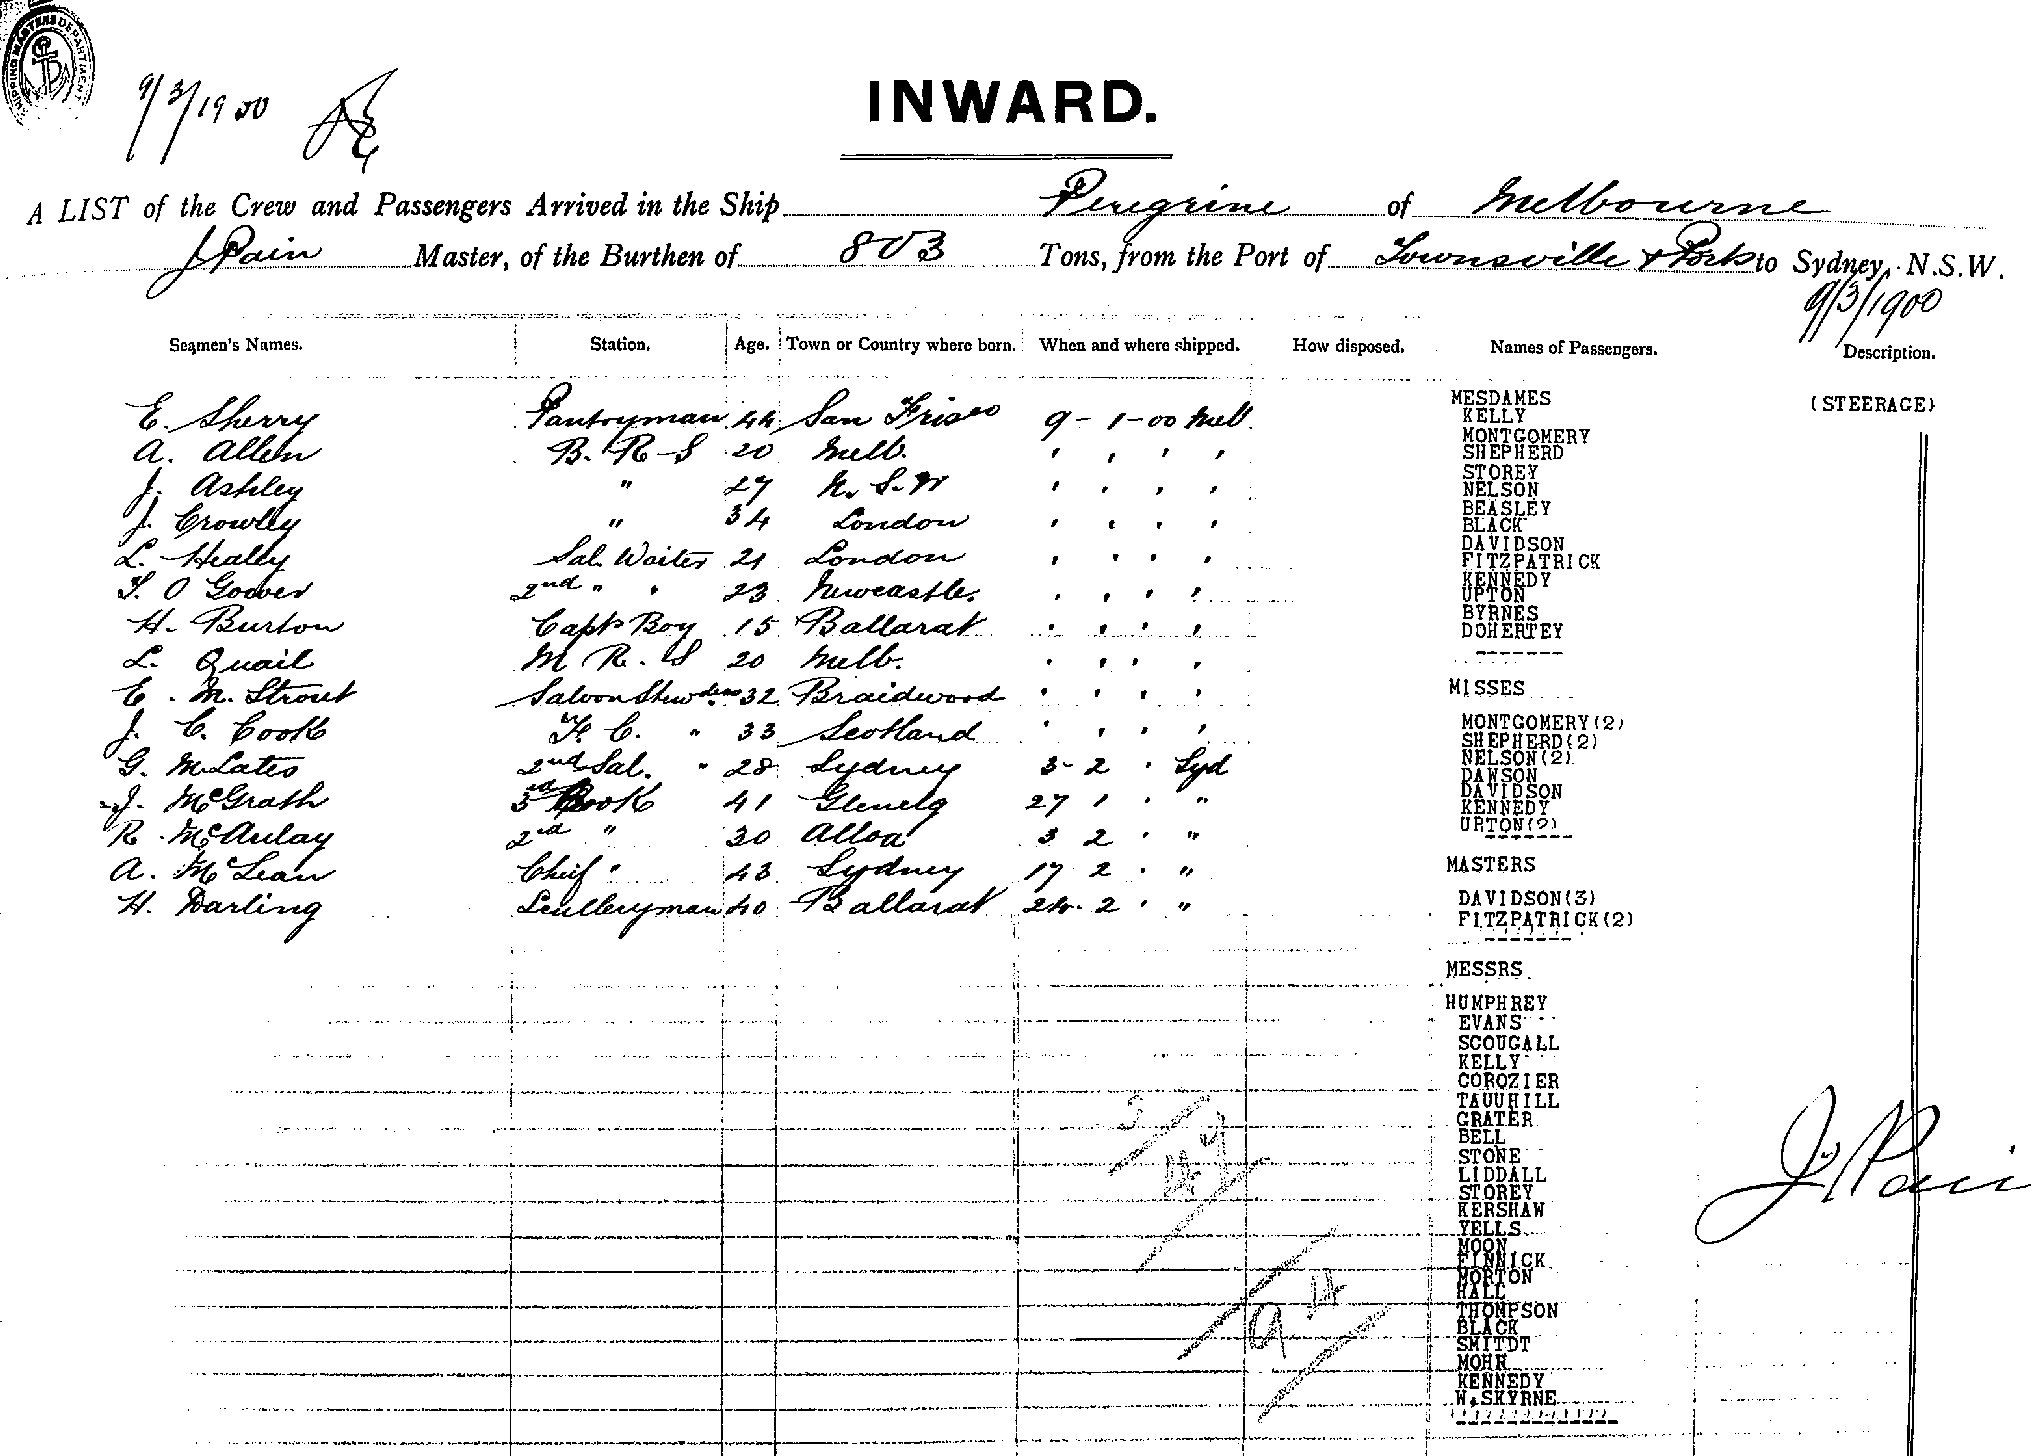 SHIPPING MASTERS DEPARTMENT
9/3/1900
INWARD.
A LIST of the Crew and Passengers Arrived in the Ship Peregrine of Melbourne
J Pain Master, of the Burthen of 803 Tons, from the Port of Townsville & Ports to Sydney, N.S.W.
9/3/1900
Seamen's Names. Station. Age. Town or Country where born. When and where shipped. How disposed. Names of Passengers. Description.
E. Sherry Pantryman 44 San Frisco 9 - 1 - 00 Melb.
A. Allen B. R - S 20 Melb. ' ' ' '
J. Ashley " 27 N. S. W ' ' ' '
J. Crowley " 34 London ' ' ' '
L. Healey Sal. Waiter 21 London ' ' ' '
T. O Goover 2nd " " 23 Newcastle. ' ' ' '
H. Burton Capts Boy 15 Ballarat ' ' ' '
L. Quail M R. S 20 Melb. ' ' ' '
E. M. Strout Saloon Stewdess 32 Braidwood ' ' ' '
J. C. Cook F. C. " 33 Scotland ' ' ' '
G. McLates 2nd Sal. " 28 Sydney 3 - 2 ' Syd
J. McGrath 3rd Cook 41 Glenelg 27 1 ' "
R McAulay 2nd " 30 Alloa 3 2 ' "
A. McLean Chief " 43 Sydney 17 2 ' "
H. Darling Scullery man 40 Ballarat 24. 2 ' "
MESDAMES (STEERAGE)
KELLY
MONTGOMERY
SHEPHERD
STOREY
NELSON
BEASLEY
BLACK
DAVIDSON
FITZPATRICK
KENNEDY
UPTON
BYRNES
DOHERTEY
MISSES
MONTGOMERY(2)
SHEPHERD(2)
NELSON(2)
DAWSON
DAVIDSON
KENNEDY
URTON(2)
MASTERS
DAVIDSON(3)
FITZPATRICK(2)
MESSRS
HUMPHREY
EVANS
SCOUGALL
KELLY
COROZIER
TAUUHILL
GRATER
BELL
STONE
LIDDALL
STOREY
KERSHAW
YELLS
MOON
FINNICK
MORTON
HALL
THOMPSON
BLACK
SMITDT
MOHR
KENNEDY
W.SKYRNE
J Pain